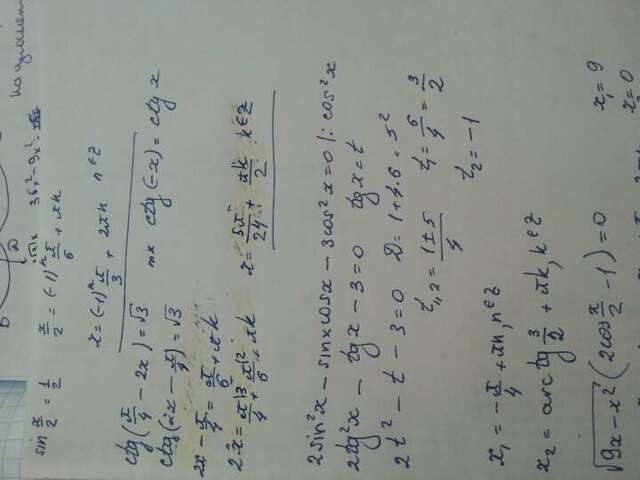 sin x/2 = 1/2
x/2 = (-1)ⁿ π/6 + πn
36x² - 9x²
x = (-1)ⁿ π/3 + 2πn n∈Z
ctg(π/4 - 2x) = √3
ctg(2x - π/4) = √3 мк ctg(-x) = ctg x
2x - π/4 = π/6 + πk
2x = π|3/4 + π|2/6 + πk x = 5π/24 + πk/2 k∈Z
2sin²x - sinxcosx - 3cos²x = 0 |: cos²x
2tg²x - tgx - 3 = 0 tgx = t
2t² - t - 3 = 0 D = 1 + 4·6 = 5²
t₁,₂ = 1±5/4 t₁ = 6/4 = 3/2
t₂ = -1
x₁ = -π/4 + πn, n∈Z
x₂ = arctg 3/2 + πk, k∈Z
√9x - x² (2cos x/2 - 1) = 0 x₁ = 9
x₂ = 0